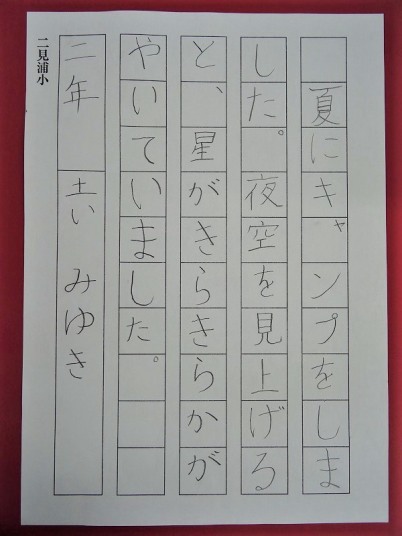 夏にキャンプをしま
した。夜空を見上げる
と、星がきらきらかが
やいていました。
二年 土い みゆき
二見浦小